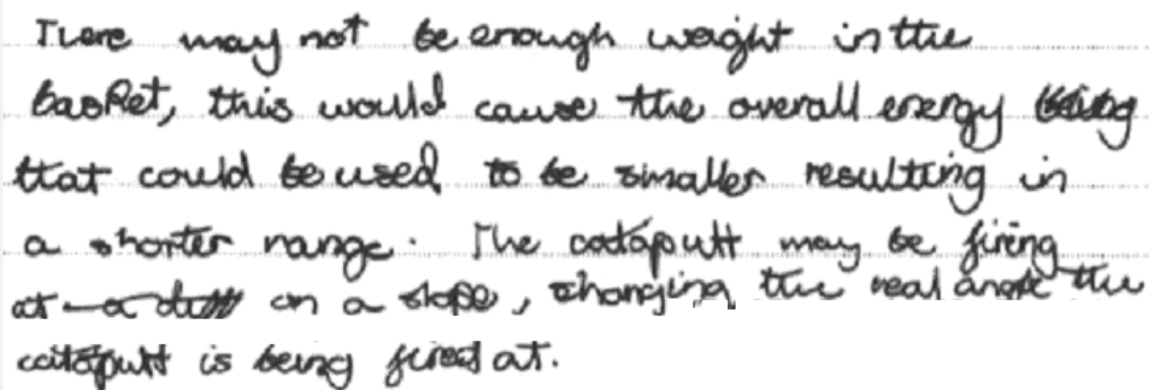 There may not be enough weight in the
basket, this would cause the overall energy
that could be used to be smaller resulting in
a shorter range. The catapult may be firing
at a on a slope, changing the real angle the
catapult is being fired at.